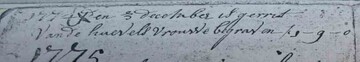 den 3 december is gerret
van de huevels vrouwe begraven 4-9-0
1775